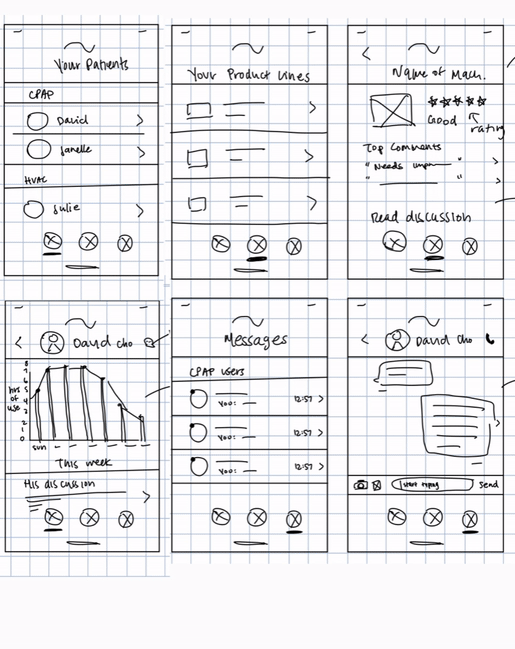 Your Patients
CPAP
David
Janelle
HVAC
Julie
Your Product Lines
Name of Mach.
Good
rating
Top Comments
"Needs impr "
" "
Read discussion
David Cho
8
7
6
5
4
3
2
1
0
hrs of use
sun
This week
His discussion
Messages
CPAP users
You:
12:57
You:
12:57
You:
12:57
David Cho
start typing
Send